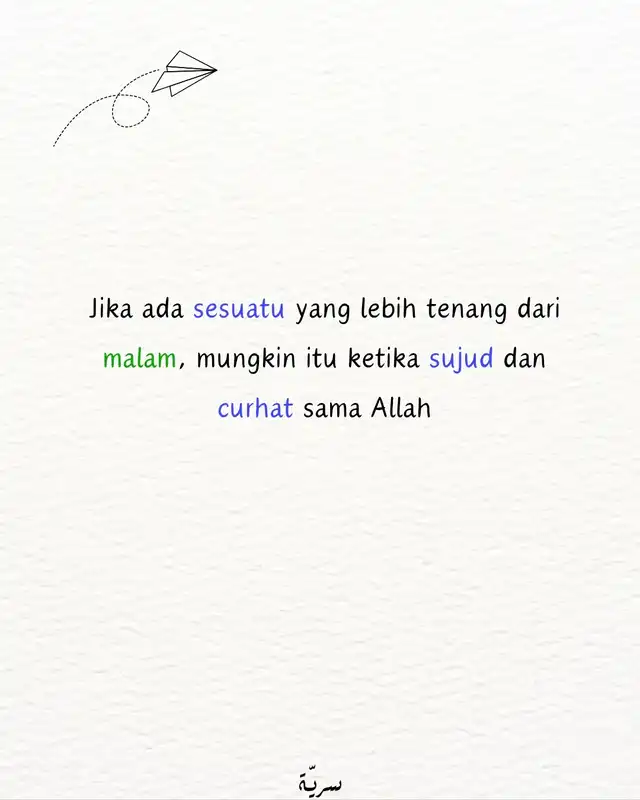 Jika ada sesuatu yang lebih tenang dari
malam, mungkin itu ketika sujud dan
curhat sama Allah
سريّة